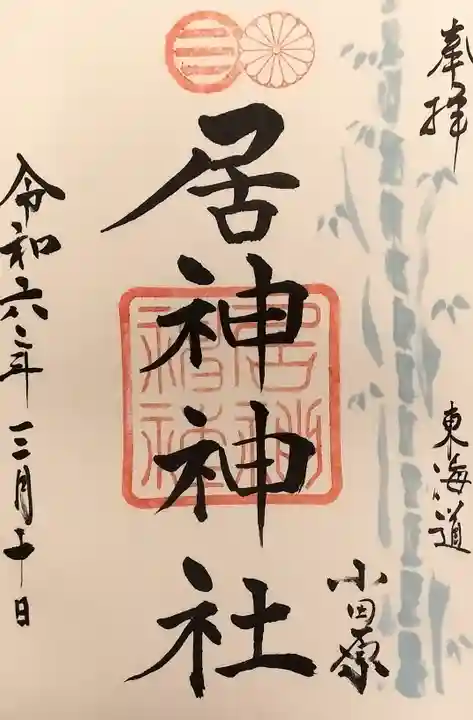 奉拝
東海道
小田原
居神神社
令和六年三月十日
居神神社